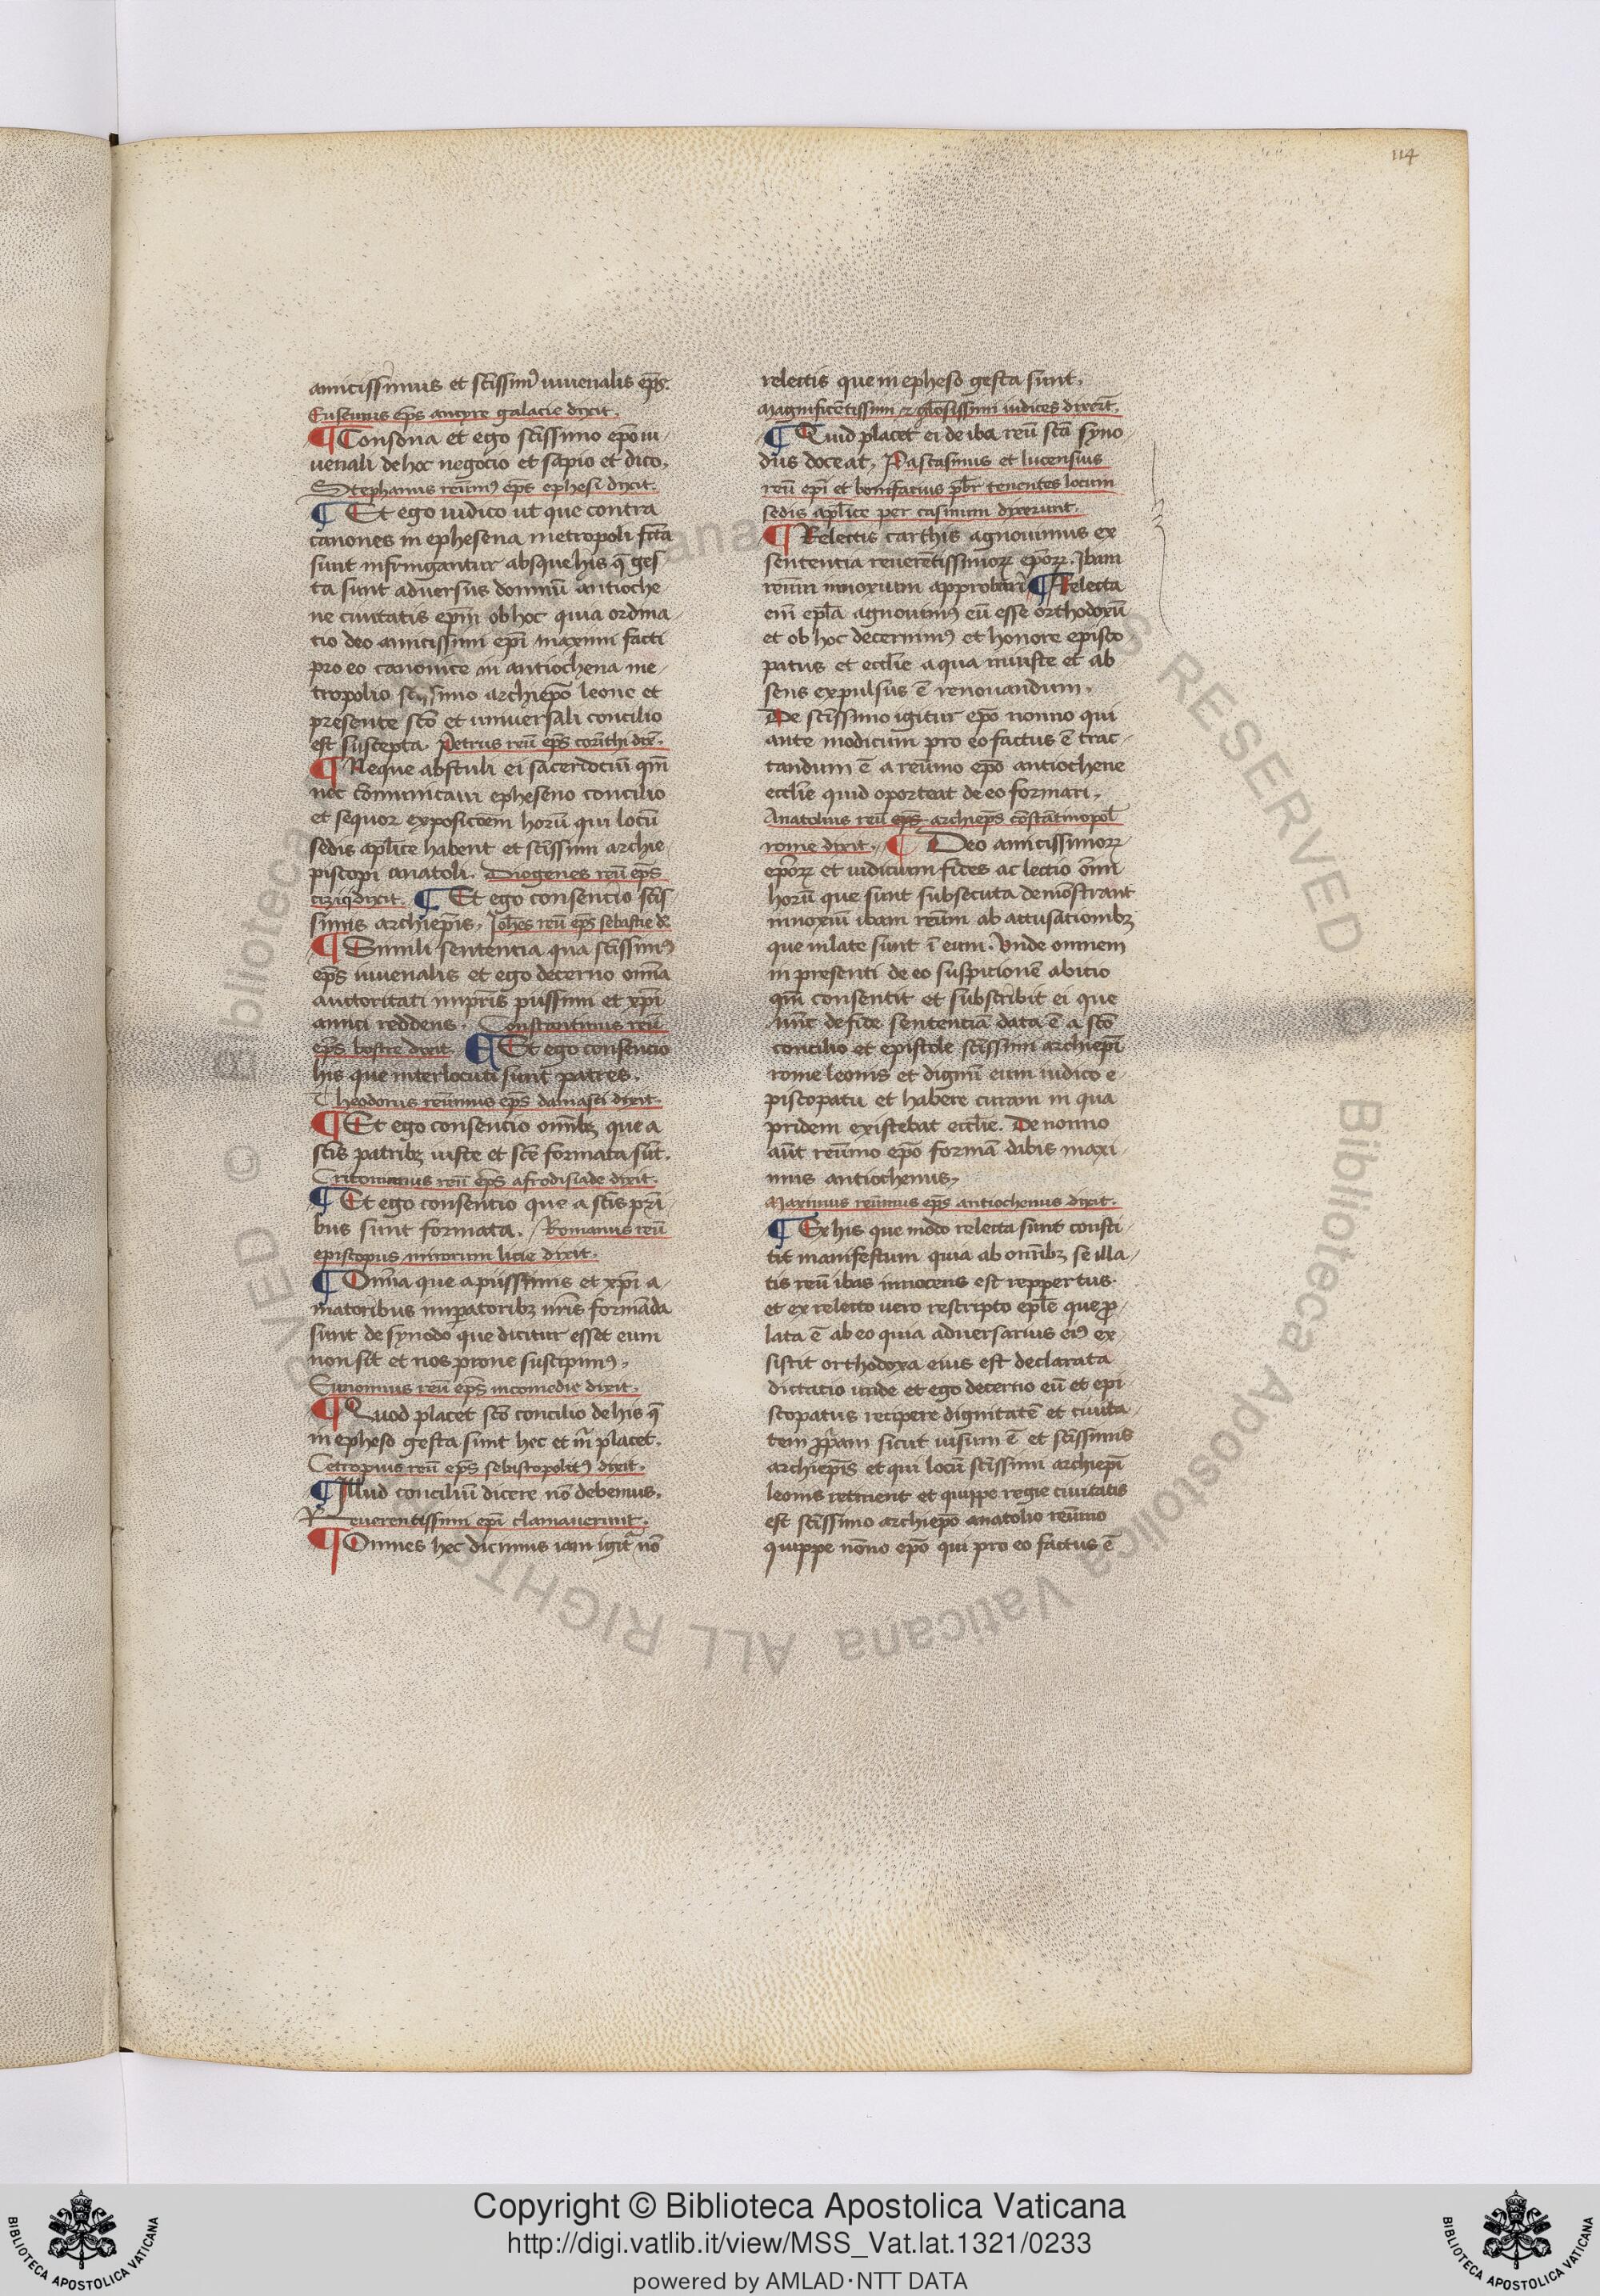 114
amicissimus et sc̄issimꝰ iuuenalis ep̄s.
Eusebius ep̄s ancyre galacie dixit.
¶ Consona et ego sc̄issimo ep̄o iu-
uenali de hoc negocio et sapio et dico.
Stephanus reuͤmꝰ ep̄s ephesi dixit.
¶ Et ego iudico ut que contra
canones in ephesena metropoli fc̄a
sunt infringantur absque his q̄ ges-
ta sunt aduersus domnū antioche
ne ciuitatis ep̄m ob hoc quia ordina-
cio deo amicissimi ep̄i maximi facti
pro eo canonice in antiochena me-
tropolio archiep̄o leone et
presente sc̄o et uniuersali concilio
est suscepta. Petrus reū ep̄s corīthi dix̄.
¶ Neque abstuli ei sacerdociū qm̄
nec cōmunicaui epheseno concilio
et sequor exposicōem horū qui locū
sedis aplīce habent et sc̄issimi archie-
piscopi anatoli. Diogenes reū ep̄s
ciziq̄ dixit. ¶ Et ego consencio sc̄is
simis archiep̄is. Joh̄es reū ep̄s sebastie dx̄
¶ Simili sentencia qua sc̄issimꝰ
ep̄s iuuenalis et ego decerno om̄ia
auctoritati imp̄ris piissimi et xp̄i
amici reddens. Constantinus reū
ep̄s bostre dixit. ¶ Et ego consencio
his que interlocuti sunt patres.
Theodorus reuͤmus ep̄s damasci dixit.
¶ Et ego consencio om̄ibꝫ que a
sc̄is patribꝫ iuste et sc̄e formata sūt.
Critonianus reū ep̄s afrodisiade dixit.
¶ Et ego consencio que a sc̄is pr̄i-
bus sunt formata. Romanus reū
episcopus mirorum licie dixit.
¶ Om̄ia que a piissimis et xp̄i a-
matoribus imꝑatoribꝫ nr̄is formāda
sunt de synodo que dicitur esset eum
non sit et nos prone suscipimꝰ.
Eunomius reū ep̄s nicomedie dixit.
¶ Quod placet sc̄o concilio de his q̄
in epheso gesta sunt hec et m̄ placet.
Cecropius reū ep̄s sebiscopolitꝰ dixit.
¶ Illud conciliū dicere nō debemus.
Reuerentissimi ep̄i clamauerunt.
¶ Omnes hec dicimus iam igit̄ nō
relectis que in epheso gesta sunt.
Magnificētissimi ⁊ gl̄osissimi iudices dixer̄t.
¶ Quid placet ei de iba reū sc̄a syno-
dus doceat. Pascasinus et lucensius
reū ep̄i et bonifacius p̄br̄ tenentes locum
sedis aplīce per casinum dixerunt.
¶ Relectis carthis agnouimus ex
sentencia reuerētissimorꝝ ep̄orꝝ. Ibam
reum̄ innoxium approbari ¶ Relecta
em̄ epl̄a agnouimꝰ eū esse orthodoxū
et ob hoc decernimꝰ et honore episco
patus et eccl̄ie a qua iniuste et ab
sens expulsus ē renouandum.
De sc̄issimo igitur ep̄o nonno qui
ante modicum pro eo factus ē trac-
tandum ē a reuͤmo ep̄o antiochene
eccl̄ie quid oporteat de eo formari.
Anatolius reū ep̄s archiep̄s cōstātinopol̄
rome dixit. ¶ Deo amicissimorꝝ
ep̄orꝝ et iudicium fides ac lectio om̄i
horū que sunt subsecuta demōstrant
innoxiū ibam reum̄ ab accusationibꝫ
que inlate sunt ī eum. Vnde omnem
in presenti de eo suspicionē abicio
qm̄ consentit et subscribit ei que
nūc de fide sentenciā data ē a sc̄o
concilio et epistole sc̄issimi archiep̄i
rome leonis et dignū eum iudico e-
piscopatu et habere curam in qua
pridem existebat eccl̄ie. De nonno
aūt reuͤmo ep̄o formā dabis maxi-
mus antiochenus.
Maximus reuͤmus ep̄s antiochenus dixit.
¶ Ex his que modo relecta sunt consti-
tit manifestum quia ab om̄ibꝫ se illa-
tis reū ibas innocens est reppertus.
et ex relecto uero rescripto epl̄e que ꝓ-
lata ē ab eo quia aduersarius eiꝰ ex-
sistit orthodoxa eius est declarata
dictacio unde et ego decerno eū et epi
scopatus recipere dignitatē et ciuita-
tem ꝓpriam sicut uisum ē et sc̄issimis
archiep̄is et qui locū sc̄issimi archiep̄i
leonis retinent et quippe regie ciuitatis
est sc̄issimo archiep̄o anatolio reuͤmo
quippe nōno ep̄o qui pro eo factus ē
Copyright © Biblioteca Apostolica Vaticana
http://digi.vatlib.it/view/MSS_Vat.lat.1321/0233
powered by AMLAD·NTT DATA
BIBLIOTECA APOSTOLICA VATICANA
BIBLIOTECA APOSTOLICA VATICANA